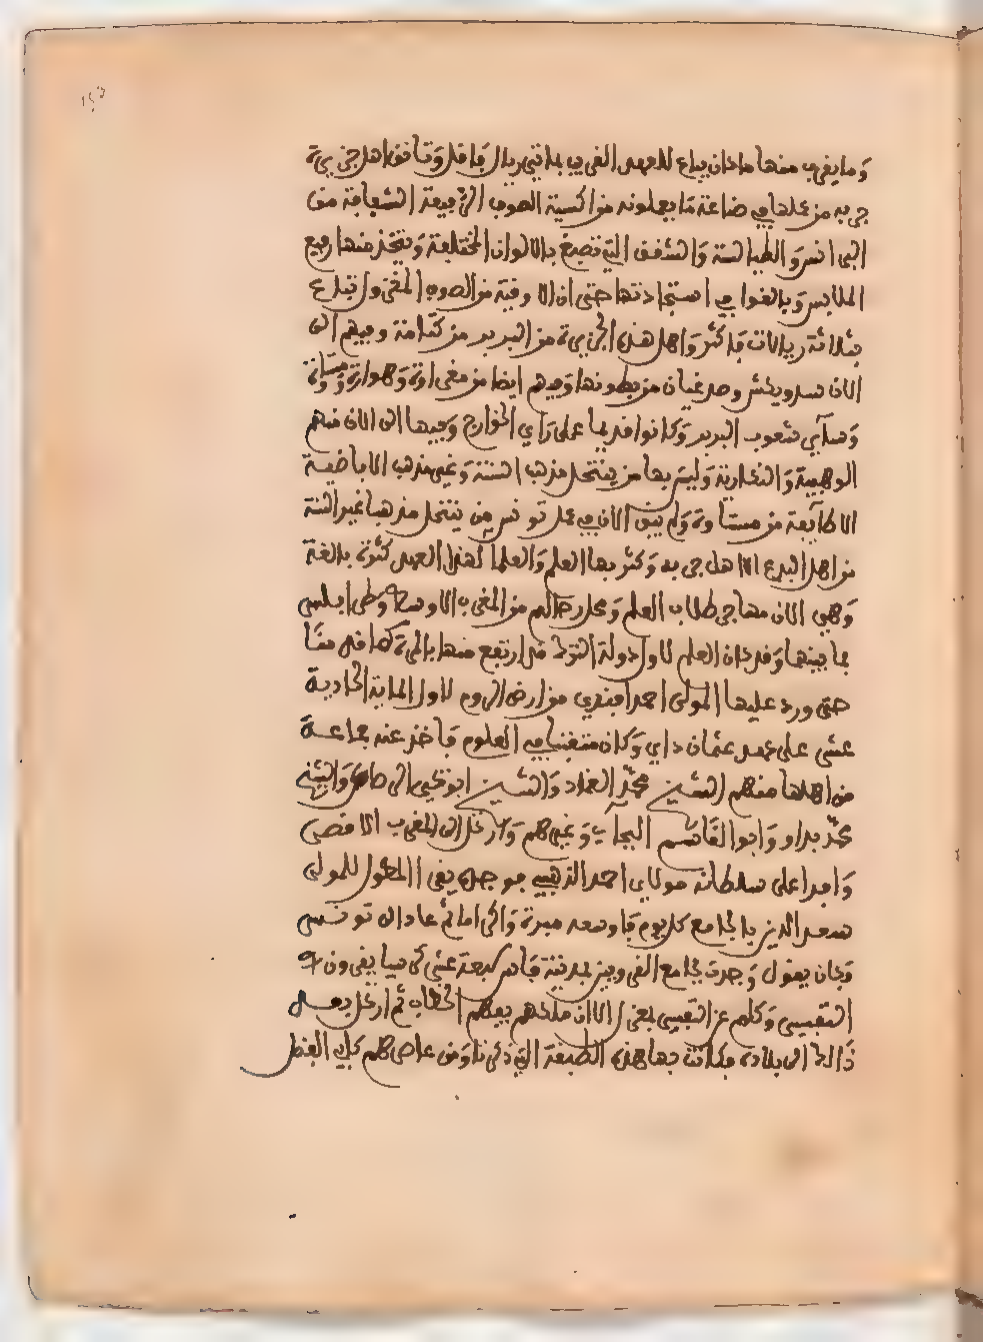 وما يقرب منها ما كان يباع للعهد القريب بمائتي ريال فاقل وتأنق اهل جزيرة
جربه من عملها في صناعة ما يعملونه من اكسية الصوف الرفيعة الشفافة من
البرانس والطيالسة والشفف التي تصبغ بالالوان المختلفة ويتخذ منها رفيع
الملابس وبالغوا في استجادتها حتى ان الاوقية من الصوف المغزول تباع
بثلاثة ريالات فاكثر واهل هذه الجزيرة من البربر من كتامة وفيهم الى
الان سدويكش وصدغيان من بطونها وفيهم ايضا من مغراوة وهوارة ومستاوة
وسائر شعوب البربر وكانوا قديما على راي الخوارج وفيها الى الان منهم
الوهبية والنكارية وليس بها من ينتحل مذهب السنة وغير مذهب الاباضية
الا طائفة من مستاوة ولم يبق الان في عمل تونس من ينتحل مذهبا غير السنة
من اهل البدع الا اهل جربه وكثر بها العلم والعلما لهذا العهد كثرة بالغة
وهي الان مهاجر طلاب العلم ومحل رحالهم من المغرب الاوسط وطرابلس
فما بينها وقد كان العلم لاول دولة الترك قد ارتفع منها بالمرة كما قدمنا
حتى ورد عليها المولى احمد افندي من ارض الروم لاول المائة الحادية
عشر على عهد عثمان داي وكان متفننا في العلوم فاخذ عنه جماعة
من اهلها منهم الشيخ محمد العماد والشيخ ابو يحيى الرصاع والشيخ
محمد براو وابو القاسم البجائي وغيرهم وارتحل الى المغرب الاقصى
وافدا على سلطانه مولاي احمد الذهبي فوجده يقرا المطول للمولى
سعد الدين بالجامع كل يوم فاوسعه مبرة واكراما ثم عاد الى تونس
وكان يقول وجدت بجامع القرويين بمدينة فاس اربعة عشر كرسيا يقرون
التفسير وكلهم عن التفسير بمعزل الا ان ملكهم يفهم الخطاب ثم ارتحل بعد
ذالك الى بلاده فكانت بها هذه الطبقة التي ذكرنا ومن عاصرهم كابي الفضل